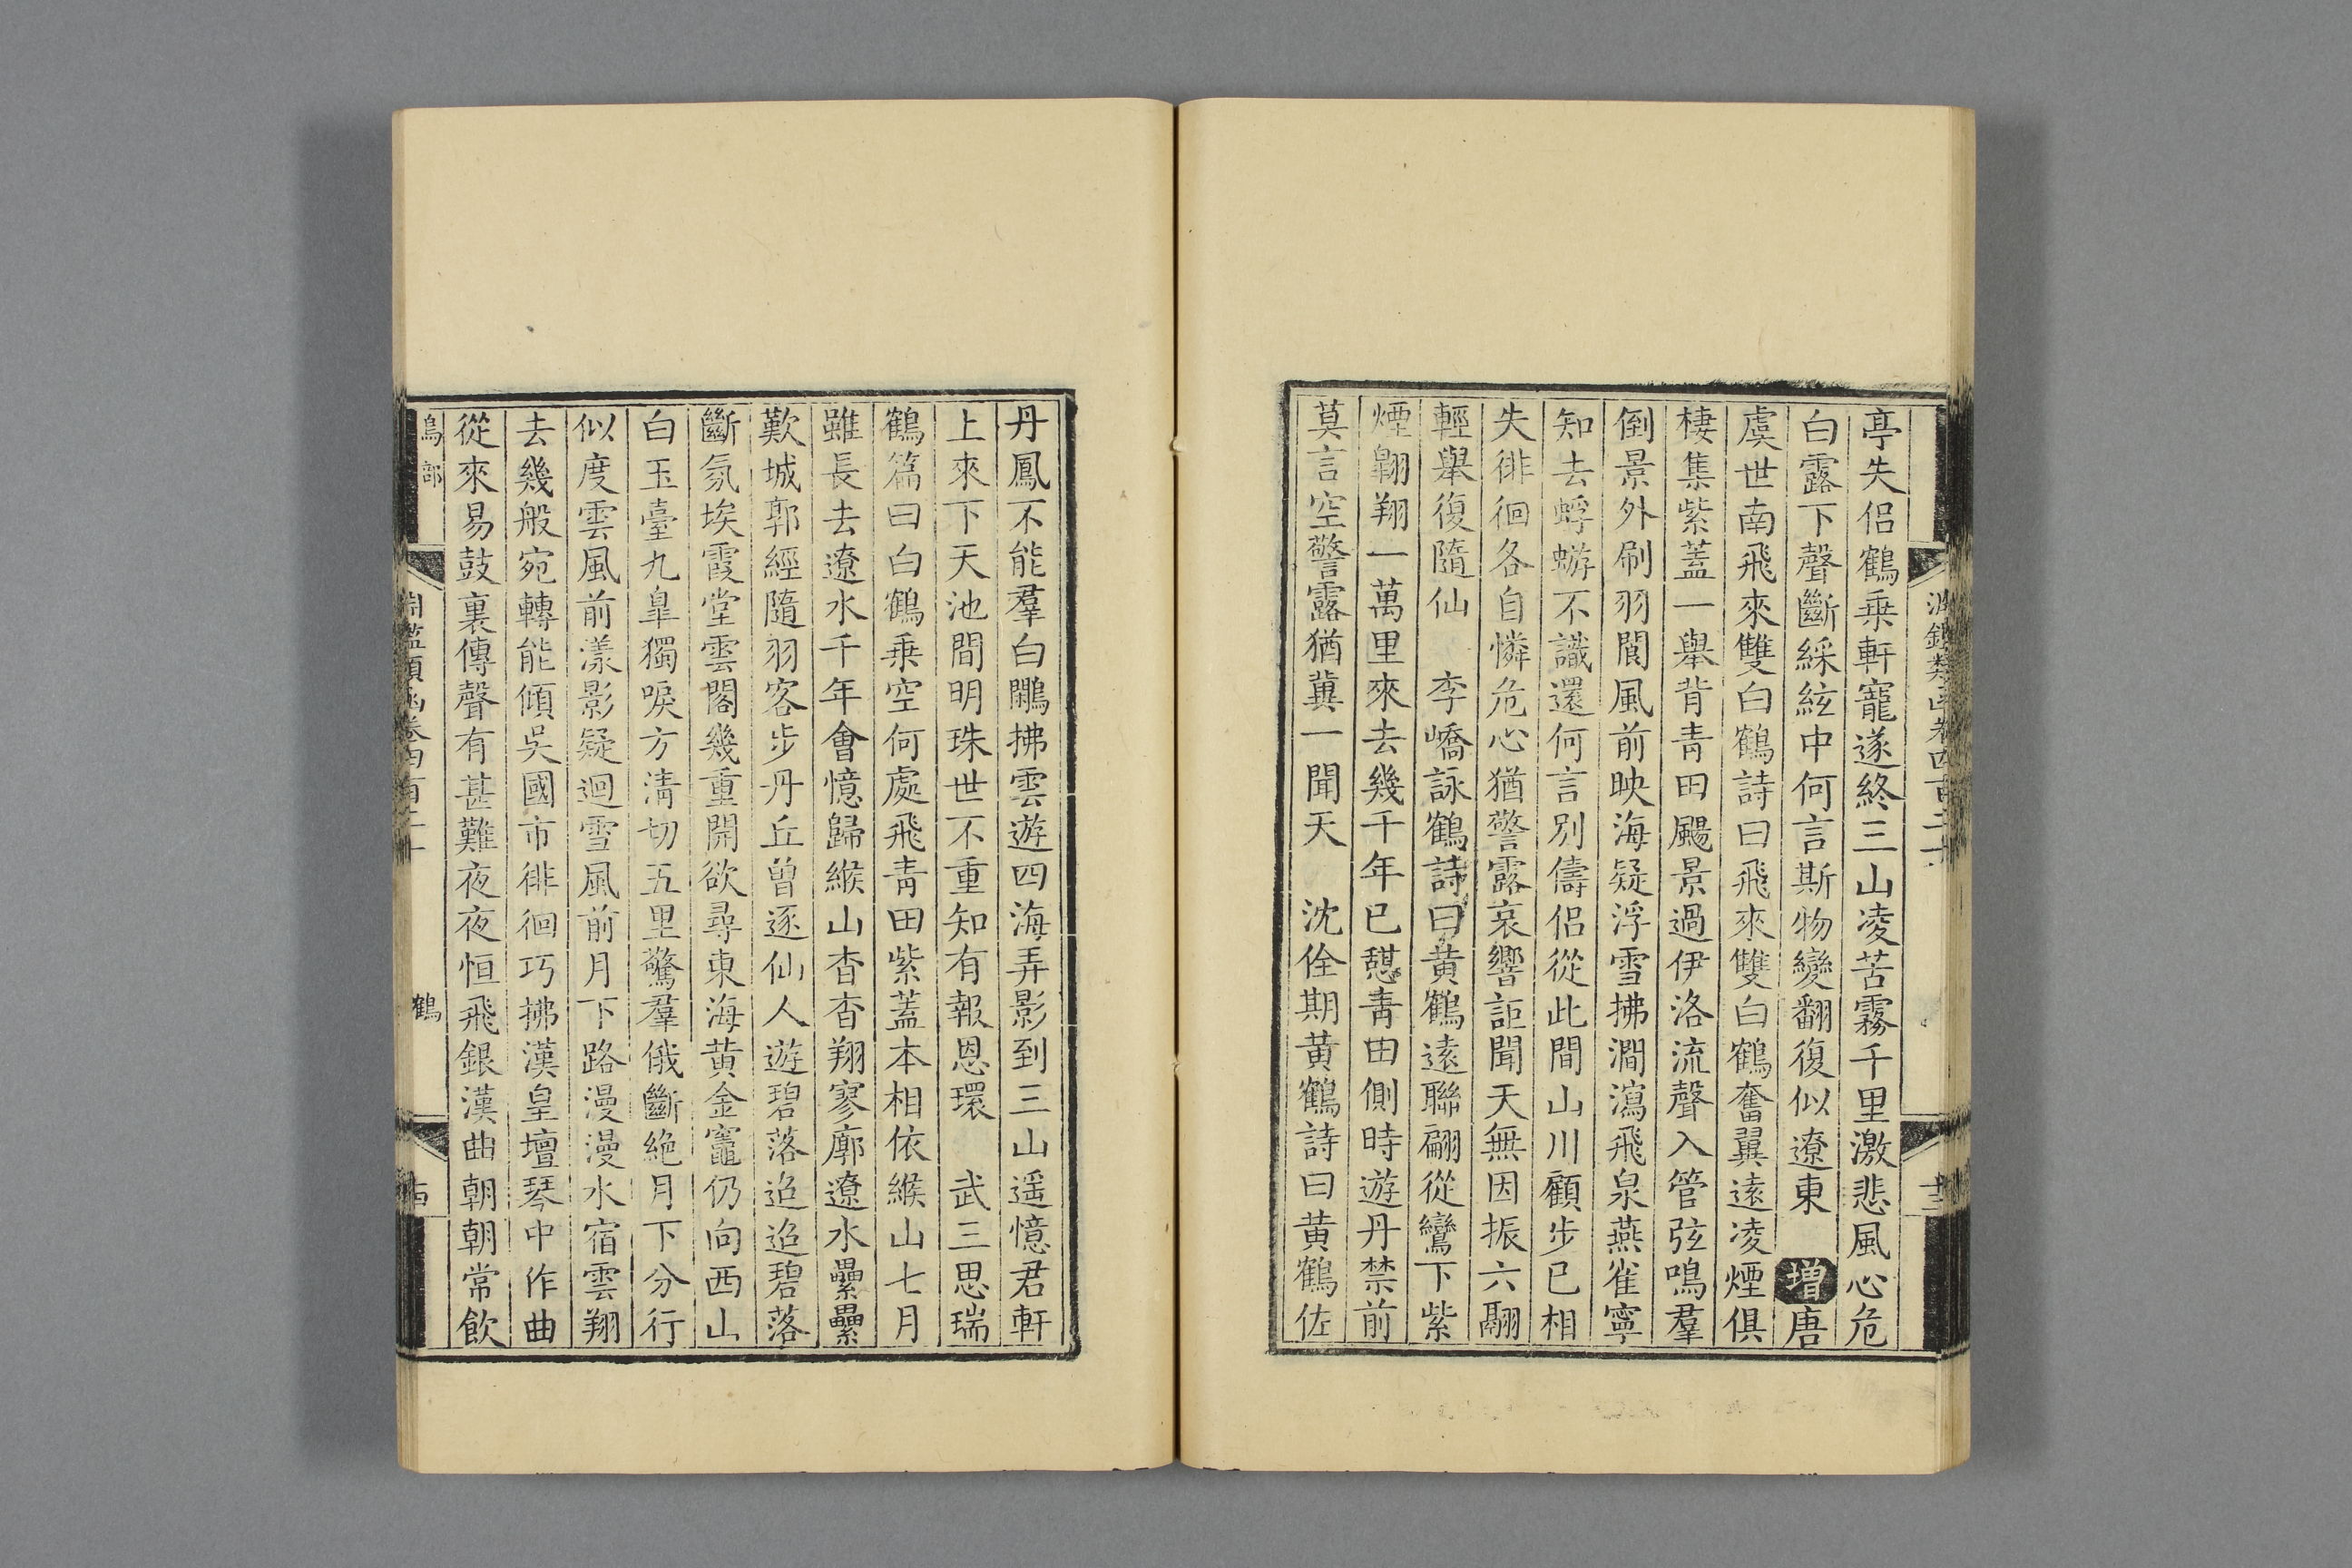 亭失侶鶴乗軒寵遂終三山凌苦霧千里激悲風心危
白露下聲斷綵絃中何言斯物變翻復似遼東 増唐
虞世南飛來雙白鶴詩曰飛來雙白鶴奮翼遠凌煙俱
棲集紫蓋一舉背青田颺景過伊洛流聲入管弦鳴羣
倒景外刷羽閬風前映海疑浮雪拂澗瀉飛泉燕雀寧
知去蜉蝣不識還何言別儔侶從此間山川顧步已相
失徘徊各自憐危心猶警露哀響詎聞天無因振六翮
輕舉復隨仙 李嶠詠鶴詩曰黄鶴遠聯翩從鸞下紫
煙翺翔一萬里來去幾千年已憩青田側時遊丹禁前
莫言空警露猶冀一聞天 沈佺期黄鶴詩曰黄鶴佐
丹鳳不能羣白鷴拂雲遊四海弄影到三山遥憶君軒
上來下天池間明珠世不重知有報恩環 武三思瑞
鶴篇曰白鶴乗空何處飛青田紫蓋本相依緱山七月
雖長去遼水千年會憶歸緱山杳杳翔寥廓遼水纍纍
歎城郭經隨羽客步丹丘曾逐仙人遊碧落迢迢碧落
斷氛埃霞堂雲閣幾重開欲尋東海黄金竈仍向西山
白玉臺九臯獨唳方清切五里驚羣俄斷絶月下分行
似度雲風前漾影疑迴雪風前月下路漫漫水宿雲翔
去幾般宛轉能傾吳國市徘徊巧拂漢皇壇琴中作曲
從來易鼓裏傳聲有甚難夜夜恒飛銀漢曲朝朝常飲
鳥部 鶴